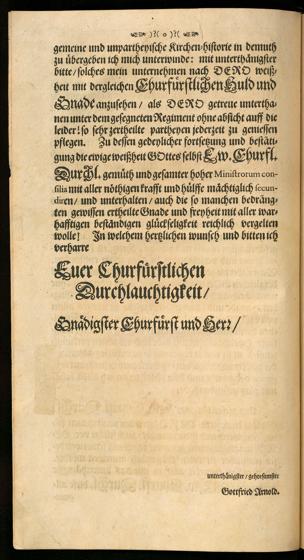 )?( o )?(
gemeine und unpartheyische Kirchen-historie in demuth
zu übergeben ich mich unterwinde: mit unterthänigster
bitte/ solches mein unternehmen nach DERO weiß-
heit mit dergleichen Churfürstlichen Huld und
Gnade anzusehen/ als DERO getreue untertha-
nen unter dem gesegneten Regiment ohne absicht auff die
leider! so sehr zertheilte partheyen jederzeit zu geniessen
pflegen. Zu dessen gedeylicher fortsetzung und bestäti-
gung die ewige weißheit GOttes selbst Ew. Churfl.
Durchl. gemüth und gesamter hoher Ministrorum con-
silia mit aller nöthigen krafft und hülffe mächtiglich secun-
diren/ und unterhalten/ auch die so manchen bedräng-
ten gewissen ertheilte Gnade und freyheit mit aller war-
hafftigen beständigen glückseligkeit reichlich vergelten
wolle! In welchem hertzlichen wunsch und bitten ich
verharre
Euer Churfürstlichen
Durchlauchtigkeit/
Gnädigster Churfürst und Herr/
unterthänigster/ gehorsamster
Gottfried Arnold.